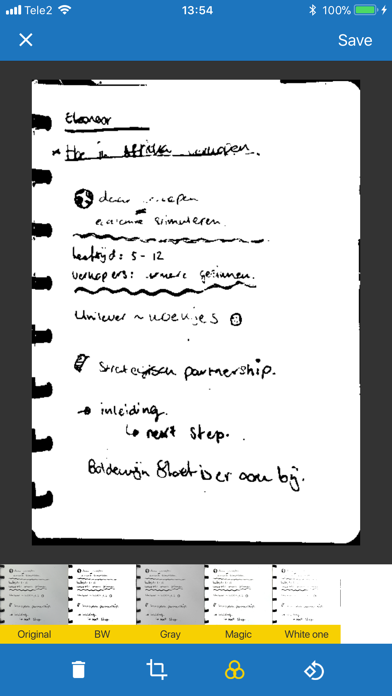 Tele2 13:54 100%
Save
Eleonoor
* Hoe in Afrika verkopen.
daar verkopen
economie stimuleren
leeftijd: 5 - 12
verkopers: armere gezinnen.
Unilever ~ koekjes
Strategisch partnership.
→ inleiding.
↳ next step.
Boldewijn Sloet is er aan bij.
Original BW Gray Magic White one